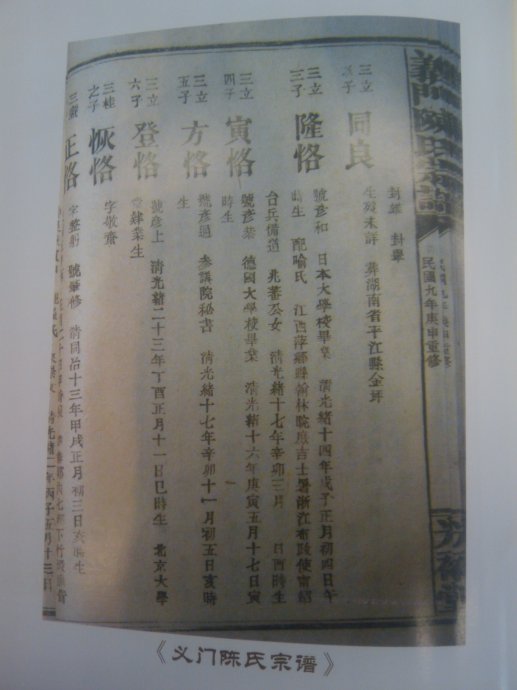 義門陳氏宗譜
民國九年庚申重修
三立
子
同良
封翠
生歿未詳 葬湖南省平江縣金坪
三立
三子
隆恪
號彥和 日本大學校畢業 清光緒十四年戊子正月初四日午
時生 配喻氏 江西萍鄉縣翰林院庶吉士署浙江布政使甯紹
台兵備道 兆蕃公女 清光緒十七年辛卯三月 日酉時生
三立
四子
寅恪
號彥恭 德國大學校畢業 清光緒十六年庚寅五月十七日寅
時生
三立
五子
方恪
號彥通 參議院秘書 清光緒十七年辛卯十一月初五日亥時
生
三立
六子
登恪
號彥上 清光緒二十三年丁酉正月十一日巳時生 北京大學
堂肄業生
三桂
之子
恢恪
字敬齋
三
正恪
字整 號 修 清同治十三年甲戌正月初三日亥時生
清光緒二年丙子五月十三日
《义门陈氏宗谱》